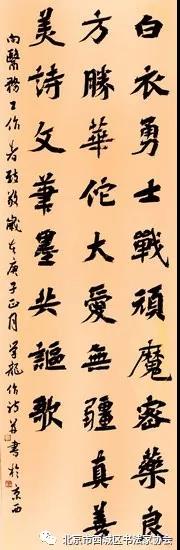 白衣勇士戰頑魔密藥良
方勝華佗大愛無疆真善
美詩文筆墨共謳歌
向醫務工作者致敬歲在庚子正月學龍作詩並書於京西
北京市西城区书法家协会